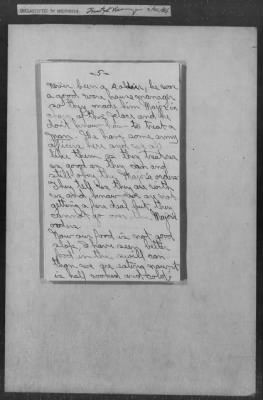 DECLASSIFIED BY
-5-
never been a soldier, he was
a good ware house manager
so they made him Major in
charg of this place and he
dont know how to treat a
man. We have some army
officers here and we all
like them as they treat us
as good as they can and
still obey the Major's orders
They tell us they are with
us and know we are not
getting a fare deal but they
cannot go over the Major's
orders.
Now our food is not good
slops, I have seen better
food in the swill can
than we are eating now, it
is half cooked and cold,